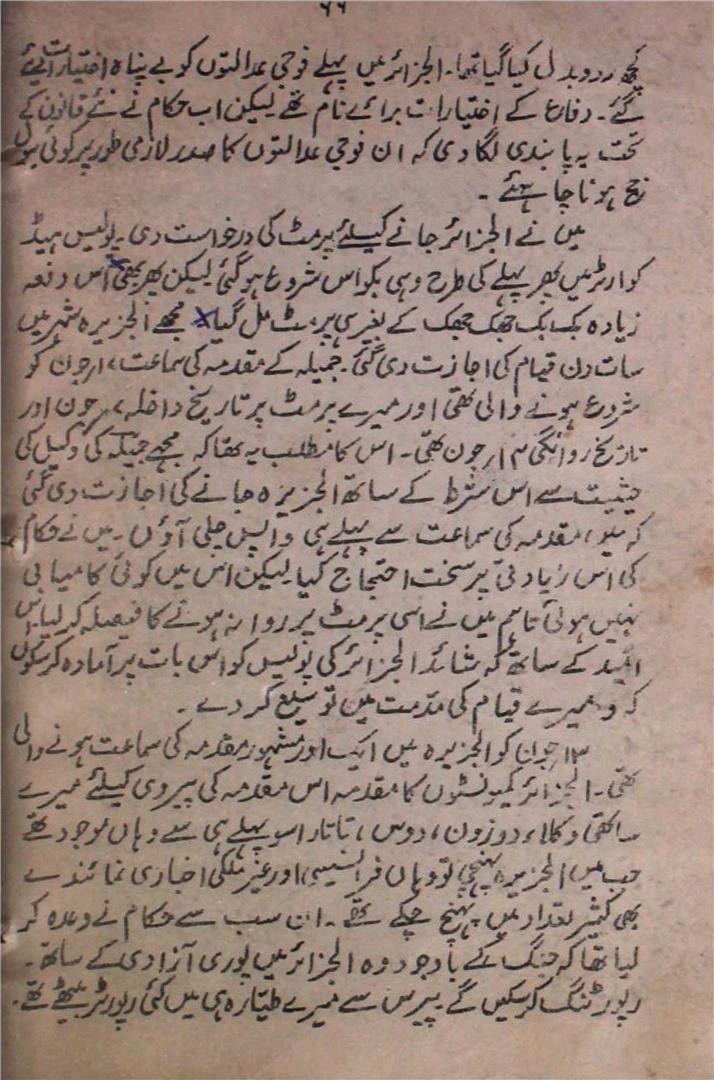 ۶۶
کچھ ردوبدل کیا گیا تھا۔ الجزائر میں پہلے فوجی عدالتوں کو بے پناہ اختیارات دیئے
گئے۔ دفاع کے اختیارات برائے نام تھے لیکن اب حکام نے نئے قانون کے
تحت یہ پابندی لگا دی کہ ان فوجی عدالتوں کا صدر لازمی طور پر کوئی سول
جج ہونا چاہئے ۔
میں نے الجزائر جانے کیلئے پرمٹ کی درخواست دی۔ پولیس ہیڈ
کوارٹر میں پھر پہلے کی طرح وہی بکواس شروع ہو گئی لیکن پھر بھی اس دفعہ
زیادہ بک بک جھک جھک کے بغیر ہی پرمٹ مل گیا مجھے الجزیرہ شہر میں
سات دن قیام کی اجازت دی گئی۔ جمیلہ کے مقدمہ کی سماعت ۱۷ جون کو
شروع ہونے والی تھی اور میرے پرمٹ پر تاریخ داخلہ جون اور
تاریخ روانگی ۱۴ جون تھی۔ اس کا مطلب یہ تھا کہ مجھے جمیلہ کی وکیل کی
حیثیت سے اس شرط کے ساتھ الجزیرہ جانے کی اجازت دی گئی
کہ میں مقدمہ کی سماعت سے پہلے ہی واپس چلی آؤں ۔ میں نے حکام
کی اس زیادتی پر سخت احتجاج کیا لیکن اس میں کوئی کامیابی
نہیں ہوئی تاہم میں نے اسی پرمٹ پر روانہ ہونے کا فیصلہ کر لیا۔ اس
امید کے ساتھ کہ شائد الجزائر کی پولیس کو اس بات پر آمادہ کر سکوں
کہ وہ میرے قیام کی مدت میں توسیع کر دے ۔
۱۳ جون کو الجزیرہ میں ایک اور مشہور مقدمہ کی سماعت ہونے والی
تھی۔ الجزائر کمیونسٹوں کا مقدمہ اس مقدمہ کی پیروی کیلئے میرے
ساتھی وکلاء دوزون، دوس، تاتار اسو پہلے ہی سے وہاں موجود تھے
جب میں الجزیرہ پہنچی تو وہاں فرانسیسی اور غیر ملکی اخباری نمائندے
بھی کثیر تعداد میں پہنچ چکے تھے ۔ ان سب سے حکام نے وعدہ کر
لیا تھا کہ جنگ کے باوجود وہ الجزائر میں پوری آزادی کے ساتھ۔
رپورٹنگ کر سکیں گے۔ پیرس سے میرے طیارہ ہی میں کئی رپورٹر بیٹھے تھے۔